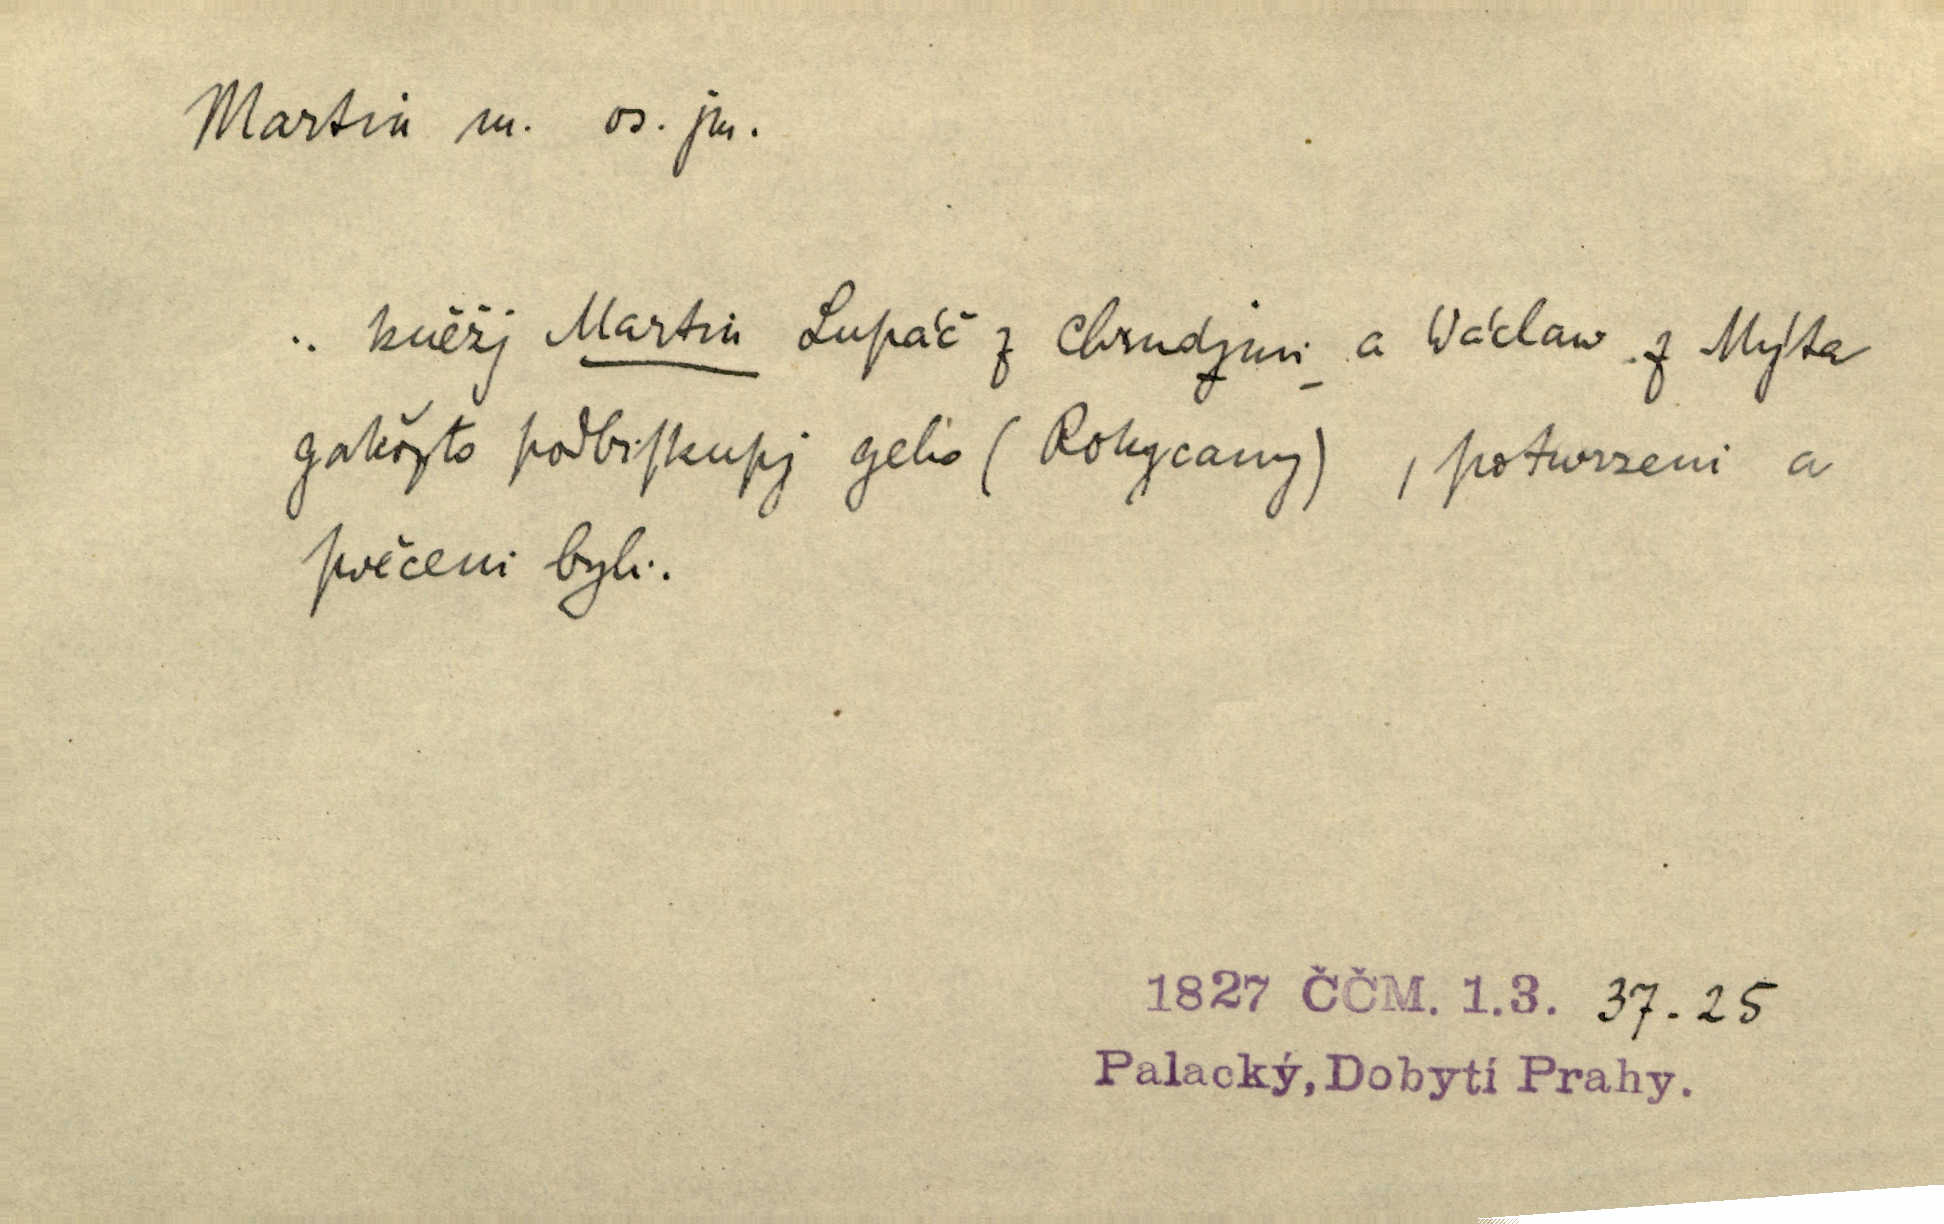 Martin m. os. jm.
.. kněžj Martin Lupáč z Chrudjmi a Wáclaw z Mýta
gakožto podbiskupj geho (Rokycany), potwrzeni a
swěceni byli.
1827 ČČM. 1.3. 37.25
Palacký, Dobytí Prahy.